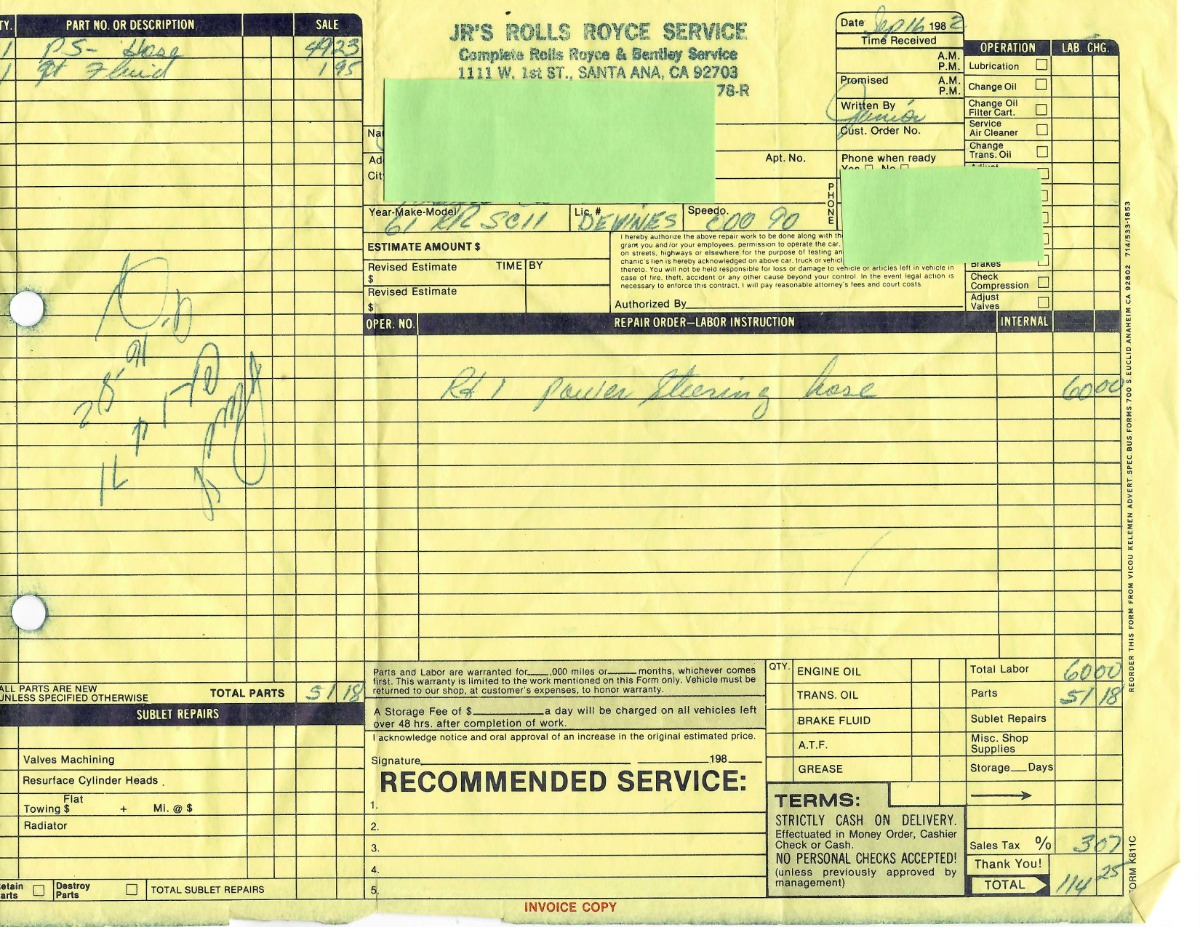 TY. PART NO. OR DESCRIPTION SALE
1 P.S- Hose 4923
1 qt Fluid 195
JR'S ROLLS ROYCE SERVICE
Complete Rolls Royce & Bentley Service
1111 W. 1st ST., SANTA ANA, CA 92703
78-R
Date Sep 16 1982
Time Received
A.M.
P.M.
Promised A.M.
P.M.
Written By Junior
Cust. Order No.
Phone when ready
Yes No
PHONE
Na
Ad Apt. No.
Cit
Year-Make-Model 61 RR SCII Lic.# DEVINES Speedo. 600 90
ESTIMATE AMOUNT $
Revised Estimate TIME BY
$
Revised Estimate
$
I hereby authorize the above repair work to be done along with the
grant you and/or your employees, permission to operate the car,
on streets, highways or elsewhere for the purpose of testing an
chanic's lien is hereby acknowledged on above car, truck or vehicl
thereto. You will not be held responsible for loss or damage to vehicle or articles left in vehicle in
case of fire, theft, accident or any other cause beyond your control. In the event legal action is
necessary to enforce this contract, I will pay reasonable attorney's fees and court costs
Authorized By
OPERATION LAB. CHG.
Lubrication
Change Oil
Change Oil
Filter Cart.
Service
Air Cleaner
Change
Trans. Oil
Adjust
Brakes
Check
Compression
Adjust
Valves
OPER. NO. REPAIR ORDER—LABOR INSTRUCTION INTERNAL
R&I power steering hose 6000
ALL PARTS ARE NEW
UNLESS SPECIFIED OTHERWISE TOTAL PARTS 51 18
SUBLET REPAIRS
Valves Machining
Resurface Cylinder Heads
Flat
Towing $ + Mi. @ $
Radiator
etain
arts Destroy
Parts TOTAL SUBLET REPAIRS
Parts and Labor are warranted for ,000 miles or months, whichever comes
first. This warranty is limited to the work mentioned on this Form only. Vehicle must be
returned to our shop, at customer's expenses, to honor warranty.
A Storage Fee of $ a day will be charged on all vehicles left
over 48 hrs. after completion of work.
I acknowledge notice and oral approval of an increase in the original estimated price.
Signature 198
RECOMMENDED SERVICE:
1.
2.
3.
4.
5.
QTY. ENGINE OIL
TRANS. OIL
BRAKE FLUID
A.T.F.
GREASE
TERMS:
STRICTLY CASH ON DELIVERY.
Effectuated in Money Order, Cashier
Check or Cash.
NO PERSONAL CHECKS ACCEPTED!
(unless previously approved by
management)
Total Labor 6000
Parts 51 18
Sublet Repairs
Misc. Shop
Supplies
Storage Days
Sales Tax % 307
Thank You!
TOTAL 114 25
INVOICE COPY
REORDER THIS FORM FROM VICOU KELEMEN ADVERT. SPEC. BUS. FORMS 700 S. EUCLID ANAHEIM CA 92802 714/533-1853
FORM K811C